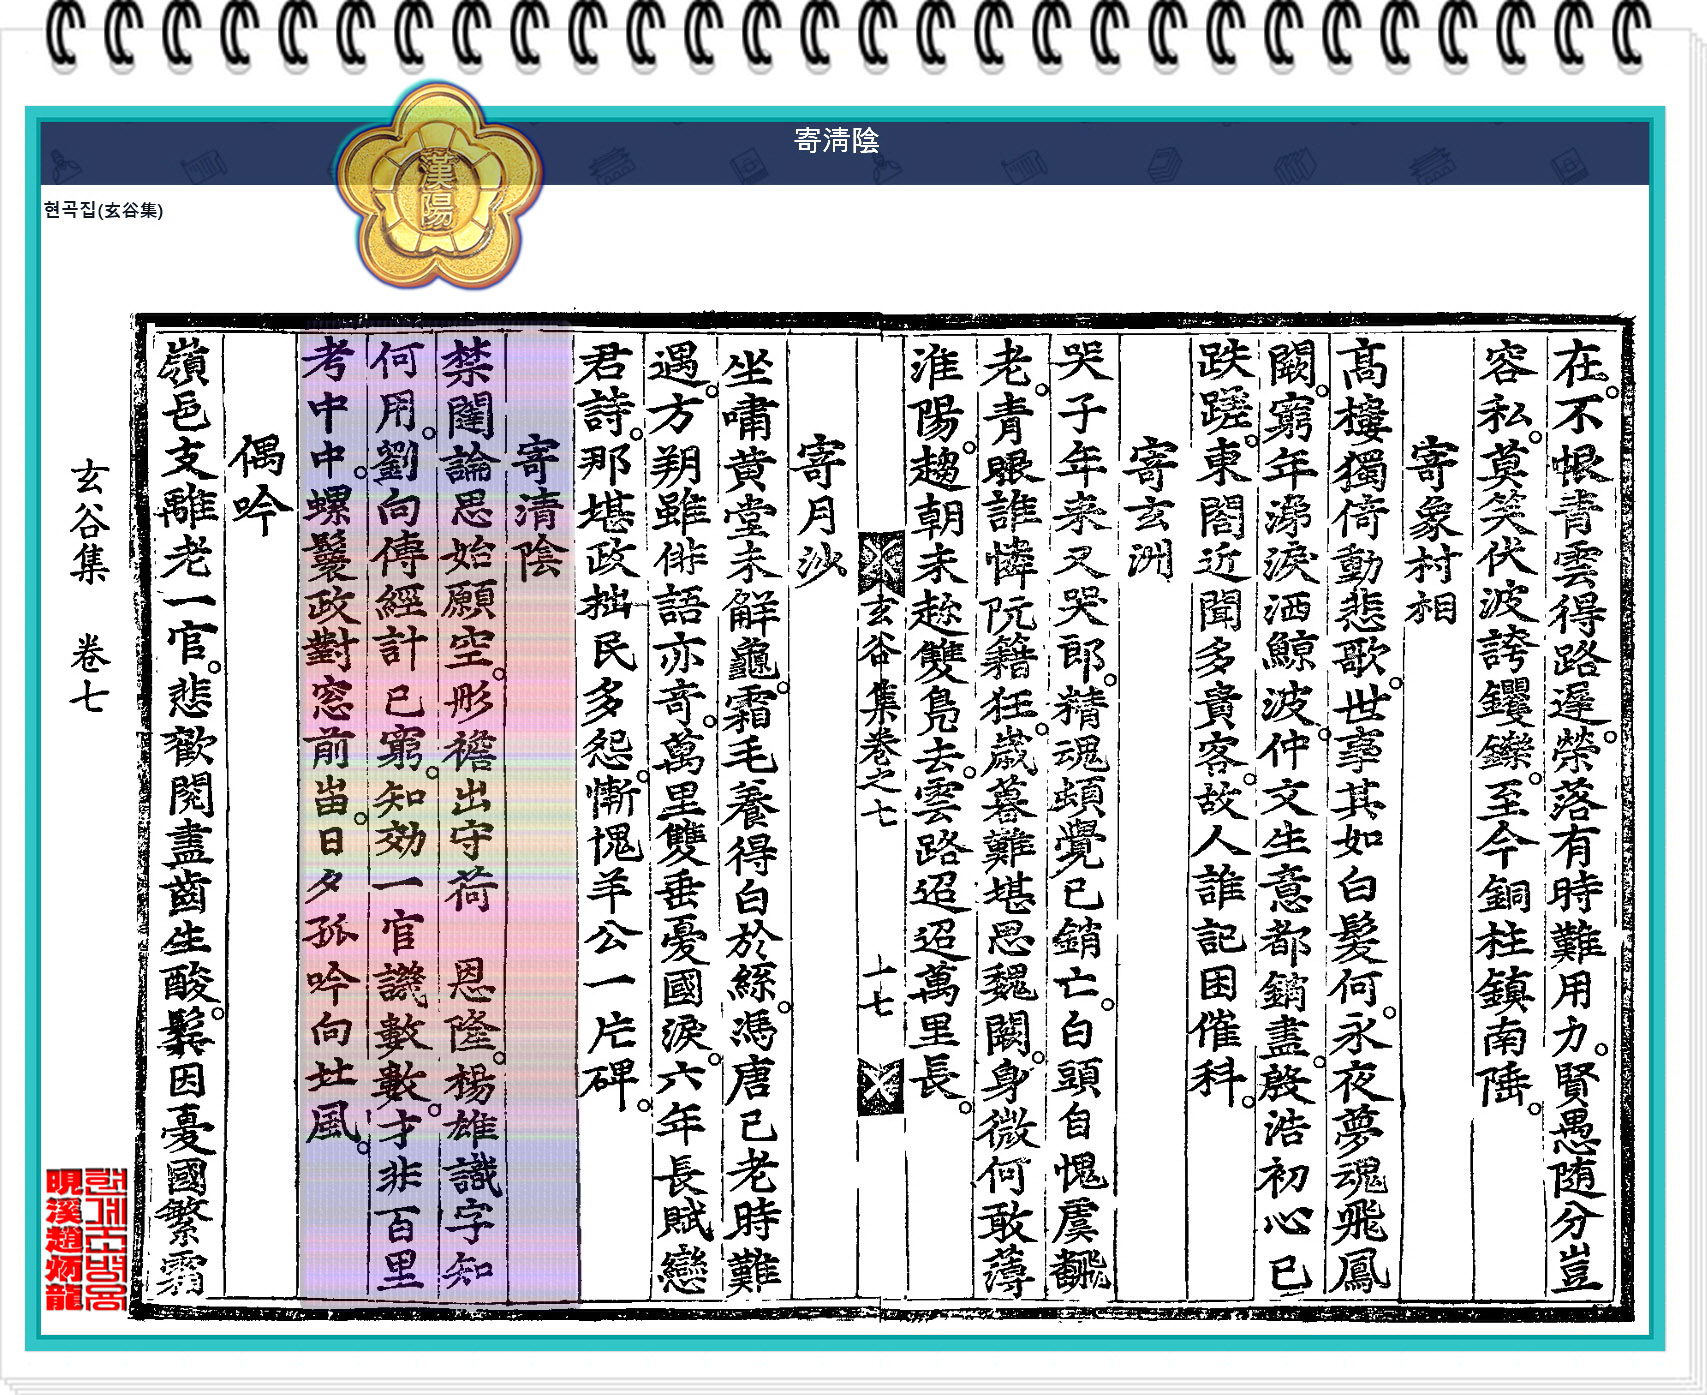 寄淸陰
漢陽
현곡집(玄谷集)
在不恨青雲得路遲榮落有時難用力賢愚随分豈
容私莫笑伏波誇钁鑠至今銅柱鎮南陲
寄象村相
髙樓獨倚動悲歌世事其如白髮何永夜夢魂飛鳳
闕窮年涕淚洒鯨波仲文生意都銷盡殷浩初心已
跌蹉東閤近聞多貴客故人誰記困催科
寄玄洲
哭子年来又哭郎精魂頓覺已銷亡白頭自愧虞翻
老青眼誰憐阮籍狂歲暮難堪思魏闕身微何敢薄
淮陽趨朝未趂雙鳧去雲路迢迢萬里長
玄谷集卷之七
十七
寄月沙
坐嘯黃堂未解龜霜毛養得白於絲馮唐已老時難
遇方朔雖俳語亦奇萬里雙垂憂國淚六年長賦戀
君詩那堪政拙民多怨慚愧羊公一片碑
寄清陰
禁闥論思始願空彤襜出守荷 恩隆楊雄識字知
何用劉向傳經計已窮知効一官譏數數才非百里
考中中螺鬟政對窓前出日夕孤吟向北風
偶吟
嶺邑支離老一官悲歡閱盡齒生酸鬂因憂國繁霜
玄谷集 卷七
현계조병용
晛溪趙炳龍